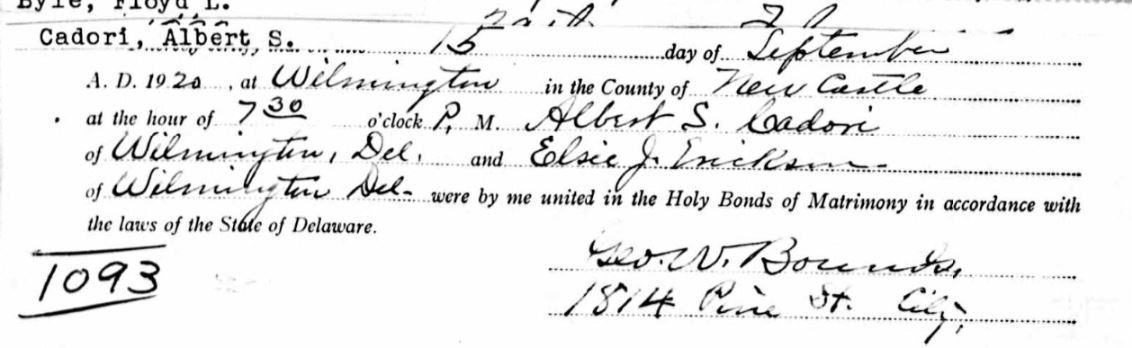 Byle, Floyd L.
Cadori, Albert S. 15 day of September
A. D. 1920, at Wilmington in the County of New Castle
at the hour of 7 30 o'clock P. M. Albert S. Cadori
of Wilmington, Del. and Elsie J. Erickson
of Wilmington Del. were by me united in the Holy Bonds of Matrimony in accordance with
the laws of the State of Delaware.
1093
Geo. W. Bounds,
1814 Pine St. City,